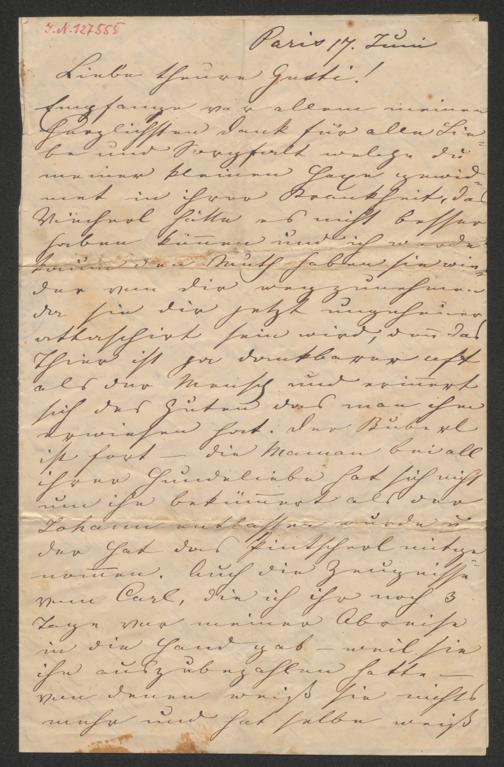 I.N. 127.555
Paris 17. Juni
Liebe theure Gusti!
Empfange vor allem meinen
herzlichsten Dank für alle Lie-
be und Sorgfalt welche du
meiner kleinen Hexe gewid-
met in ihrer Krankheit, das
Viecherl hätte es nicht besser
haben können und ich werde
kaum den Muth haben sie wie-
der von dir wegzunehmen
da sie dir jetzt ungeheuer
attaschirt sein wird, denn das
Thier ist ja dankbarer oft
als der Mensch und erinnert
sich des Guten das man ihm
erwiesen hat. Der Buberl
ist fort – die Maman bei all
ihrer Hundeliebe hat sich nicht
um ihn bekümmert als der
Johann entlassen wurde u
der hat das Pintscherl mitge
nommen. Auch die Zeugnisse
vom Carl, die ich ihr noch 3
Tage vor meiner Abreise
in die Hand gab – weil sie
ihn auszubezahlen hatte –
von denen weiß sie nichts
mehr und hat selbe weiß